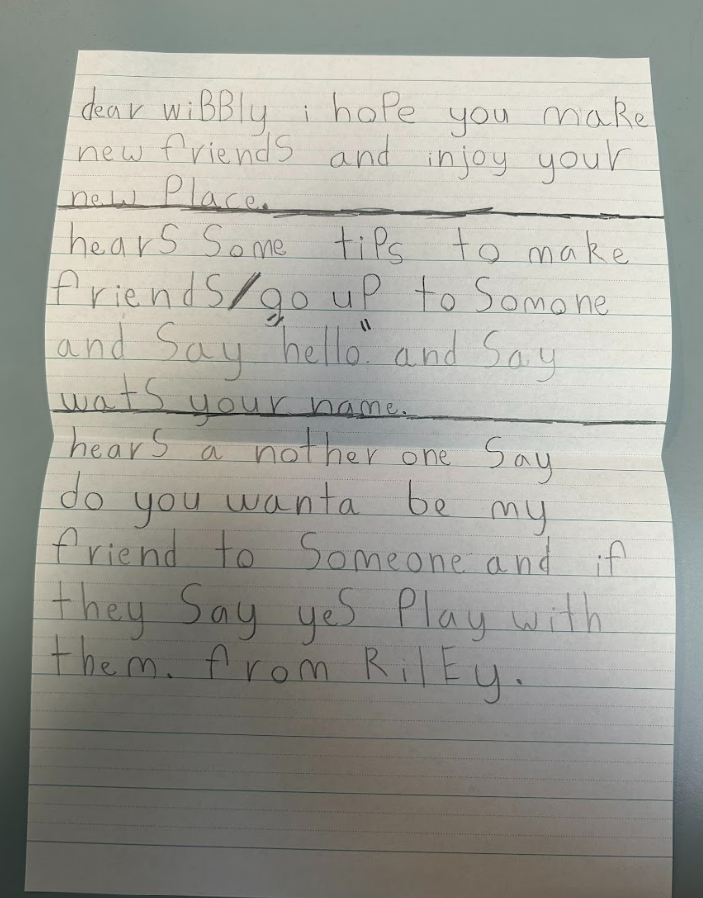 dear wiBBly i hoPe you make
new friends and injoy your
new Place.
hears Some tiPs to make
friends/go uP to Somone
and Say "hello." and Say
wats your name.
hears a nother one Say
do you wanta be my
friend to Someone and if
they Say yes Play with
them. from RilEy.